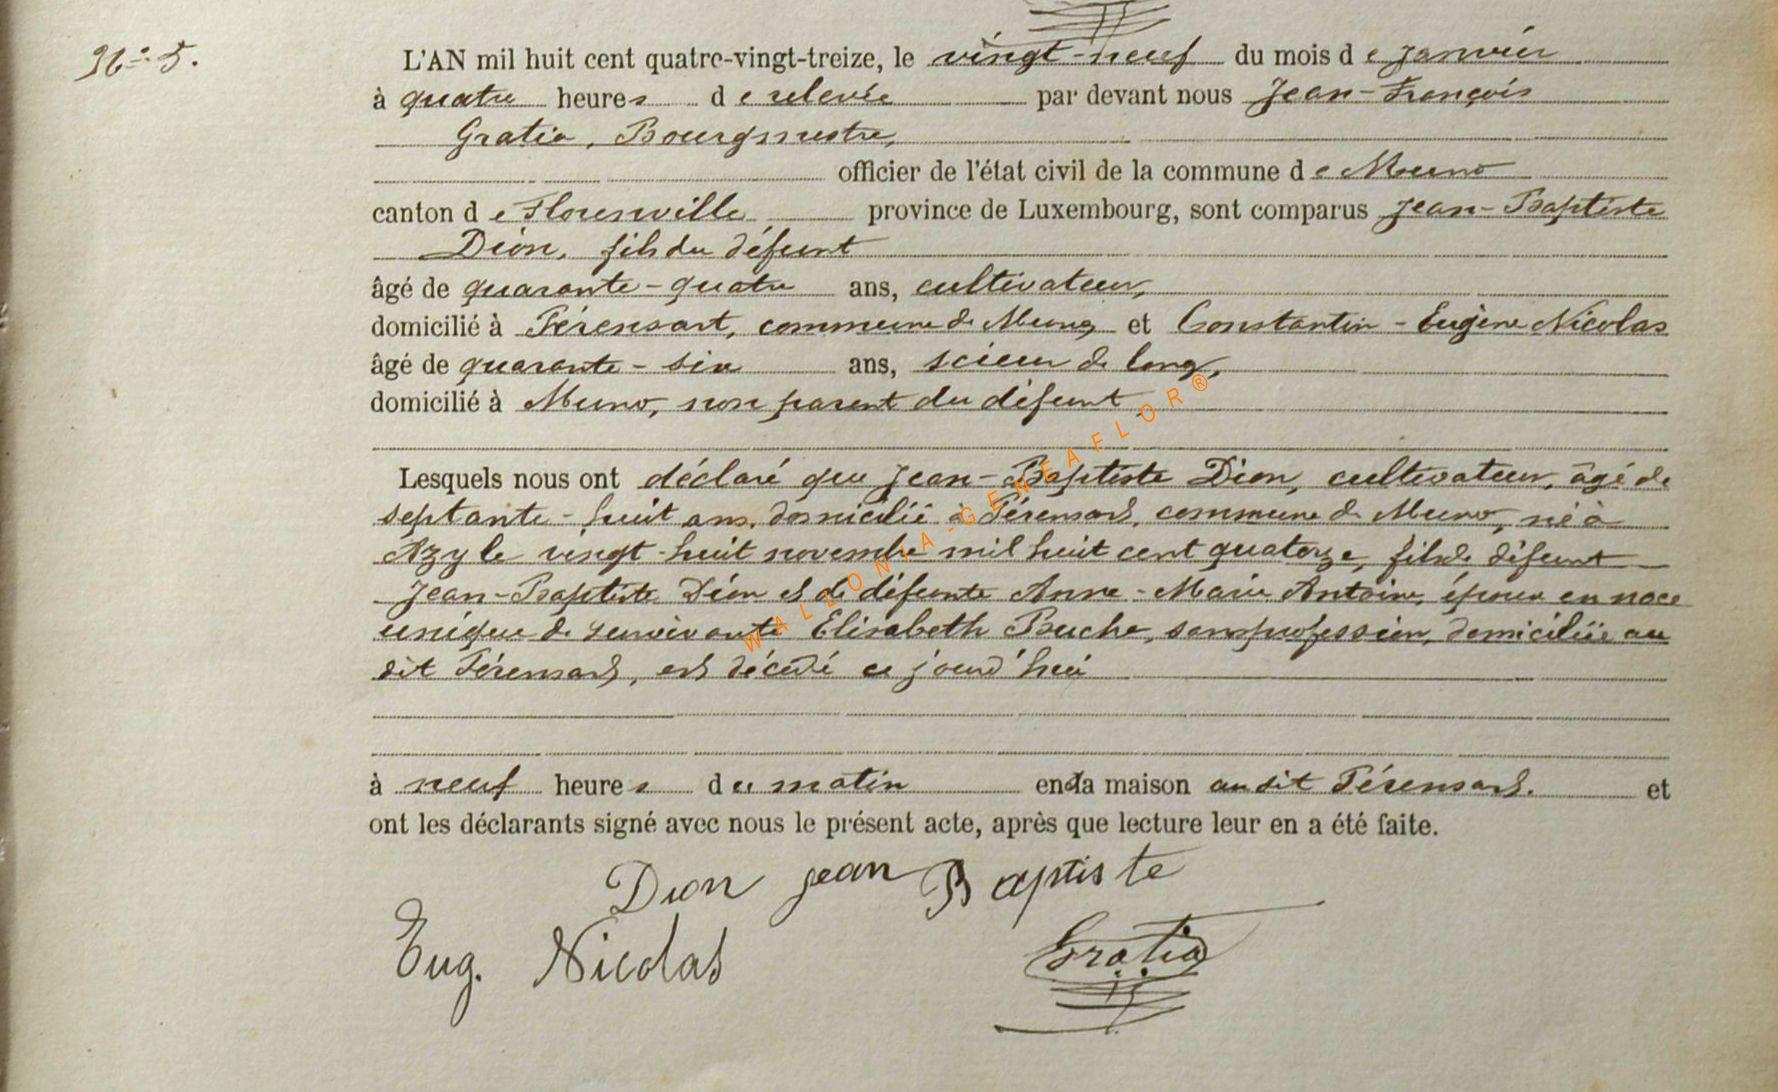 N° 5.
L'AN mil huit cent quatre-vingt-treize, le vingt-neuf du mois de Janvier
à quatre heures de relevée par devant nous Jean-François
Gratia, Bourgmestre,
officier de l'état civil de la commune de Muno
canton de Florenville province de Luxembourg, sont comparus Jean-Baptiste
Dion, fils du défunt
âgé de quarante-quatre ans, cultivateur,
domicilié à Férensart, commune de Muno, et Constantin-Eugène Nicolas
âgé de quarante-six ans, scieur de long,
domicilié à Muno, non parent du défunt
Lesquels nous ont déclaré que Jean-Baptiste Dion, cultivateur, âgé de
septante-huit ans, domicilié à Férensart, commune de Muno, né à
Azy le vingt-huit novembre mil huit cent quatorze, fils de défunt
Jean-Baptiste Dion et de défunte Anne-Marie Antoine, époux en noce
unique de survivante Elisabeth Buche, sans profession, domiciliée au
dit Férensart, est décédé ce jourd'hui
à neuf heures du matin en la maison au dit Férensart. et
ont les déclarants signé avec nous le présent acte, après que lecture leur en a été faite.
Dion jean Baptiste
Eug. Nicolas
Gratia
WALLONIA-GENEAFLOR®